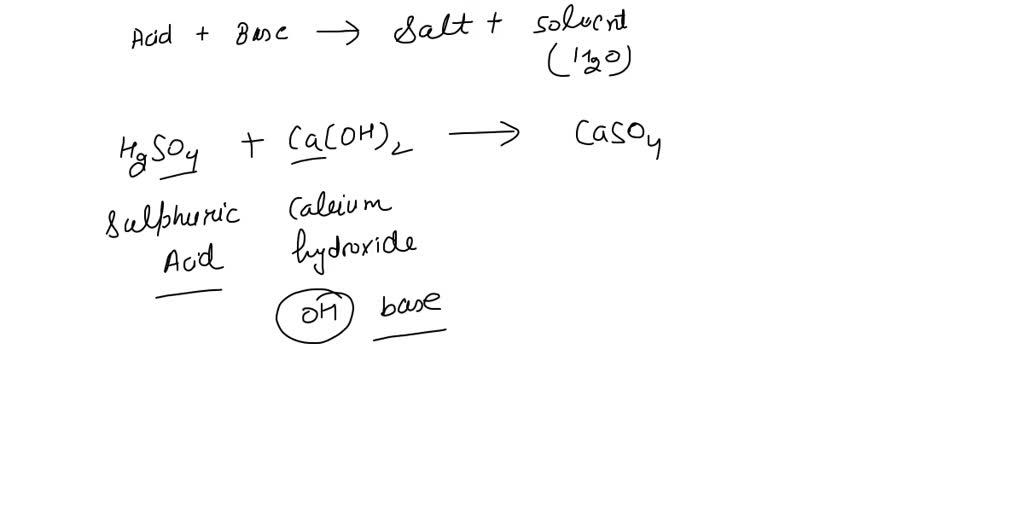 Acid + Base → Salt + Solvent
(H2O)
H2SO4 + Ca(OH)2 → CaSO4
Sulphuric Calcium
Acid hydroxide
OH base